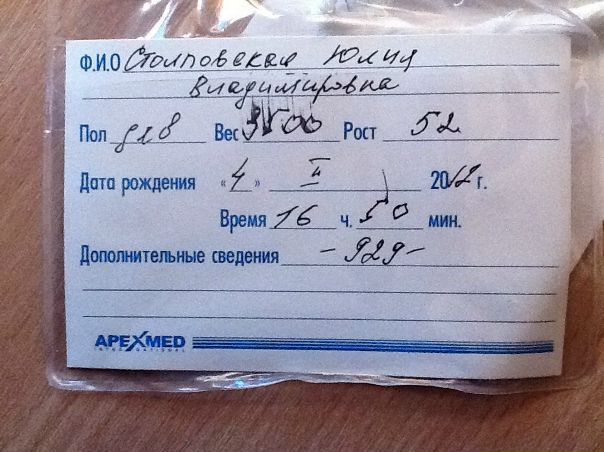 Ф.И.О Столповская Юлия
Владимировна
Пол дев Вес 3500 Рост 52
Дата рождения «4» II 2012 г.
Время 16 ч. 50 мин.
Дополнительные сведения -929-
APEXMED
INTERNATIONAL